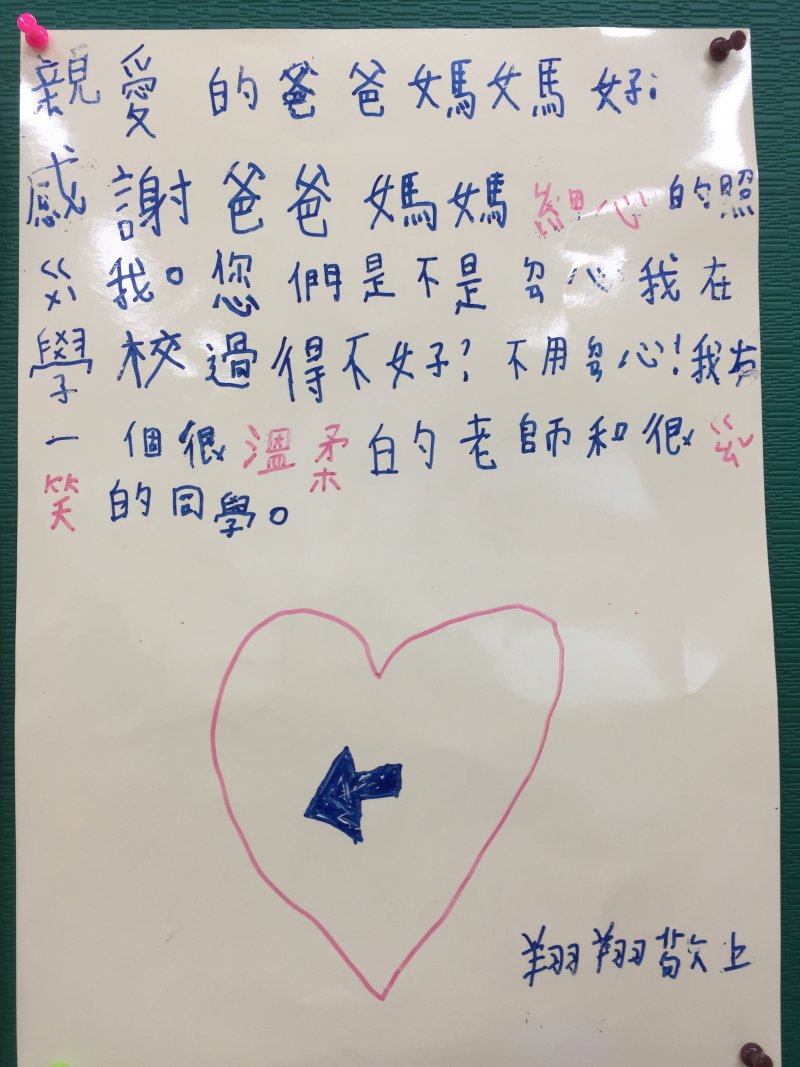 親愛的爸爸媽媽好：
感謝爸爸媽媽細心的照
ㄍㄨˋ我。您們是不是ㄉㄢ心我在
學校過得不好？不用ㄉㄢ心！我有
一個很溫柔的老師和很ㄍㄠˇ
笑的同學。
翔翔敬上